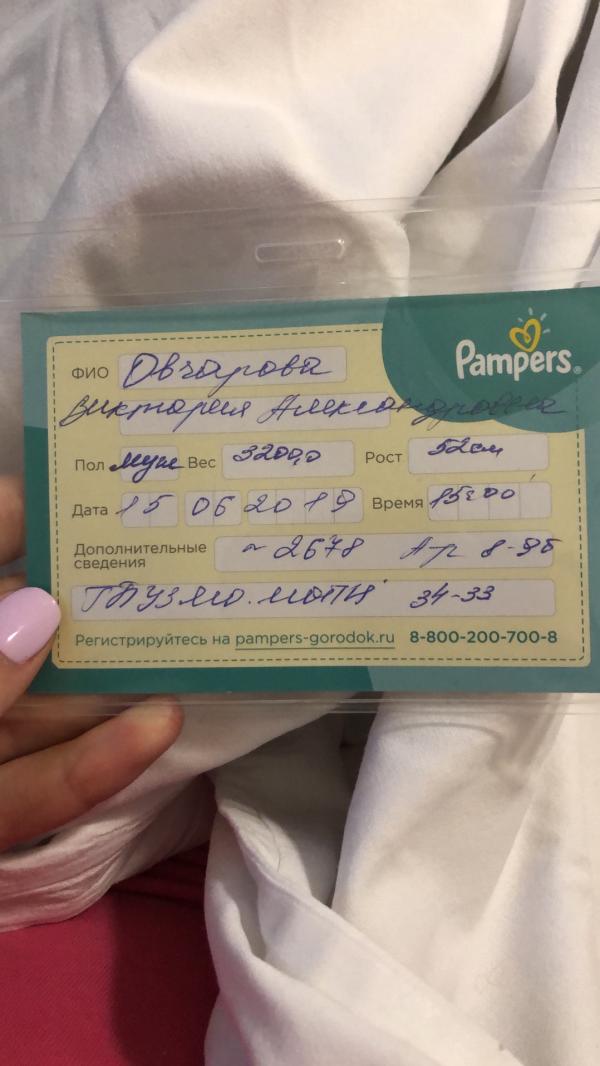 Pampers®
ФИО Овчарова
Виктория Александровна
Пол муж Вес 3200,0 Рост 52см
Дата 15 06 2019 Время 15:00
Дополнительные сведения ~ 2678 Ар 8-9б
ГБУЗ МО. МОПЦ 34-33
Регистрируйтесь на pampers-gorodok.ru 8-800-200-700-8